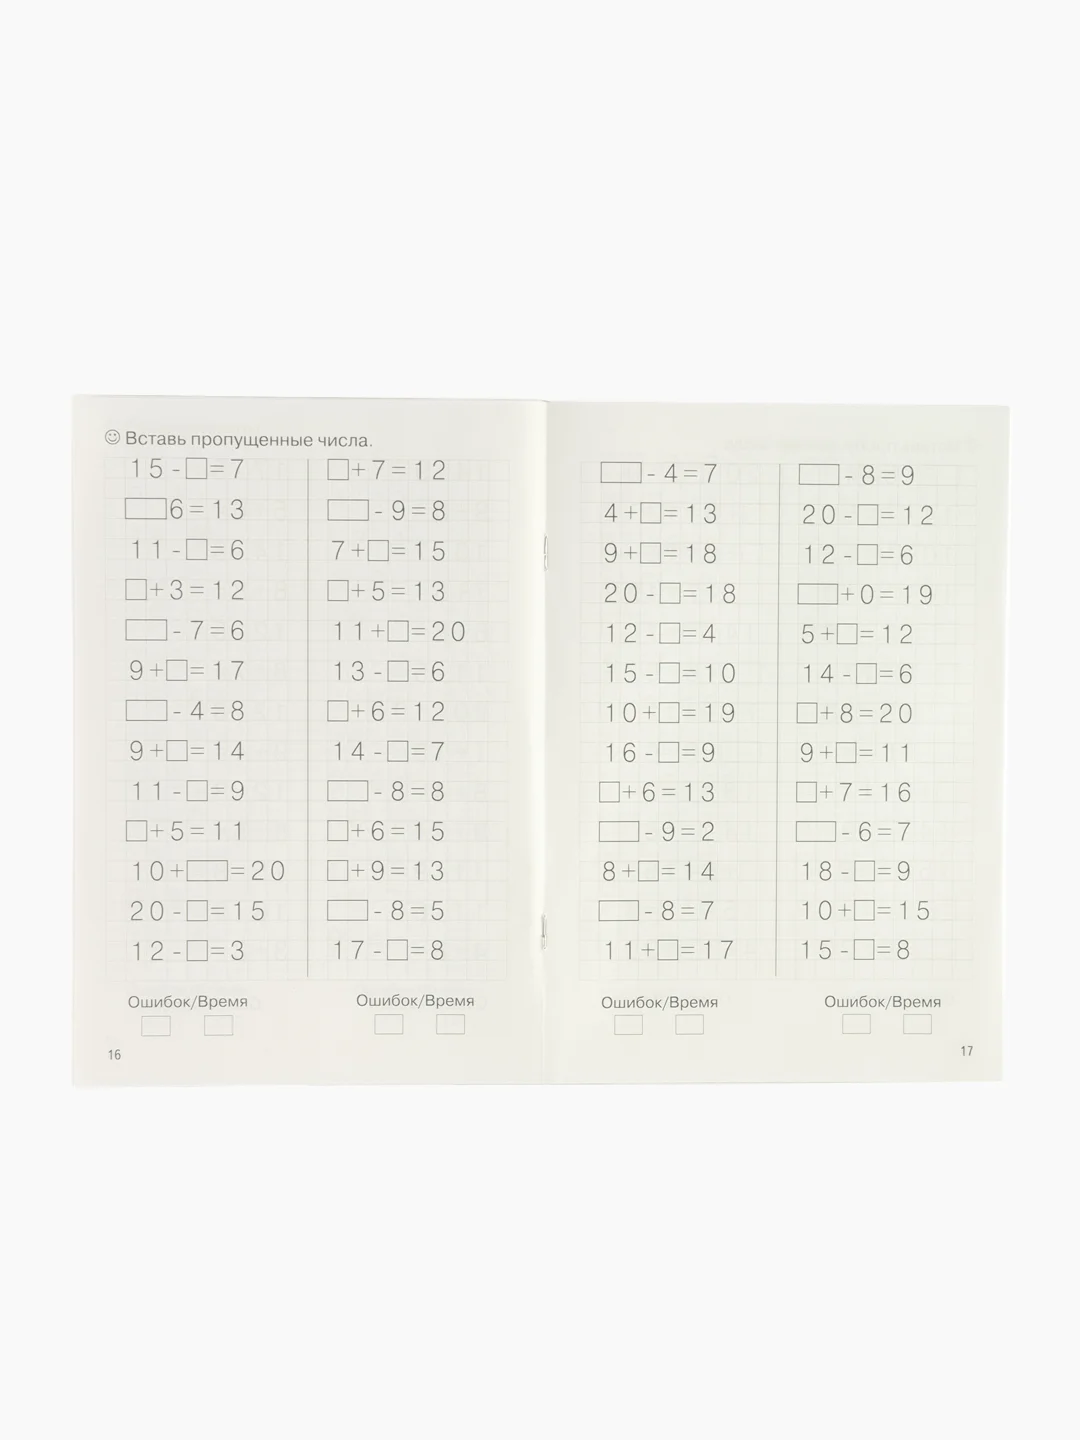 ☺ Вставь пропущенные числа.
15 - □ = 7
□ 6 = 13
11 - □ = 6
□ + 3 = 12
□ - 7 = 6
9 + □ = 17
□ - 4 = 8
9 + □ = 14
11 - □ = 9
□ + 5 = 11
10 + □ = 20
20 - □ = 15
12 - □ = 3
Ошибок/Время
16
□ + 7 = 12
□ - 9 = 8
7 + □ = 15
□ + 5 = 13
11 + □ = 20
13 - □ = 6
□ + 6 = 12
14 - □ = 7
□ - 8 = 8
□ + 6 = 15
□ + 9 = 13
□ - 8 = 5
17 - □ = 8
Ошибок/Время
□ - 4 = 7
4 + □ = 13
9 + □ = 18
20 - □ = 18
12 - □ = 4
15 - □ = 10
10 + □ = 19
16 - □ = 9
□ + 6 = 13
□ - 9 = 2
8 + □ = 14
□ - 8 = 7
11 + □ = 17
Ошибок/Время
□ - 8 = 9
20 - □ = 12
12 - □ = 6
□ + 0 = 19
5 + □ = 12
14 - □ = 6
□ + 8 = 20
9 + □ = 11
□ + 7 = 16
□ - 6 = 7
18 - □ = 9
10 + □ = 15
15 - □ = 8
Ошибок/Время
17